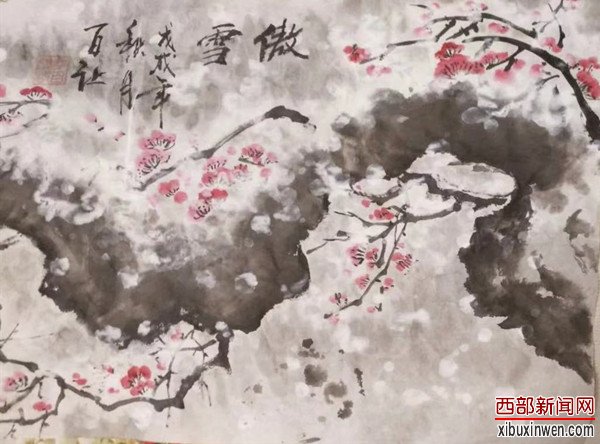 傲雪
戊戌年
秋月
西部新闻网
xibuxinwen.com